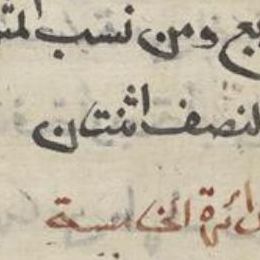 ومن نسب
لنصف اثنتان
ائرة الخامسة